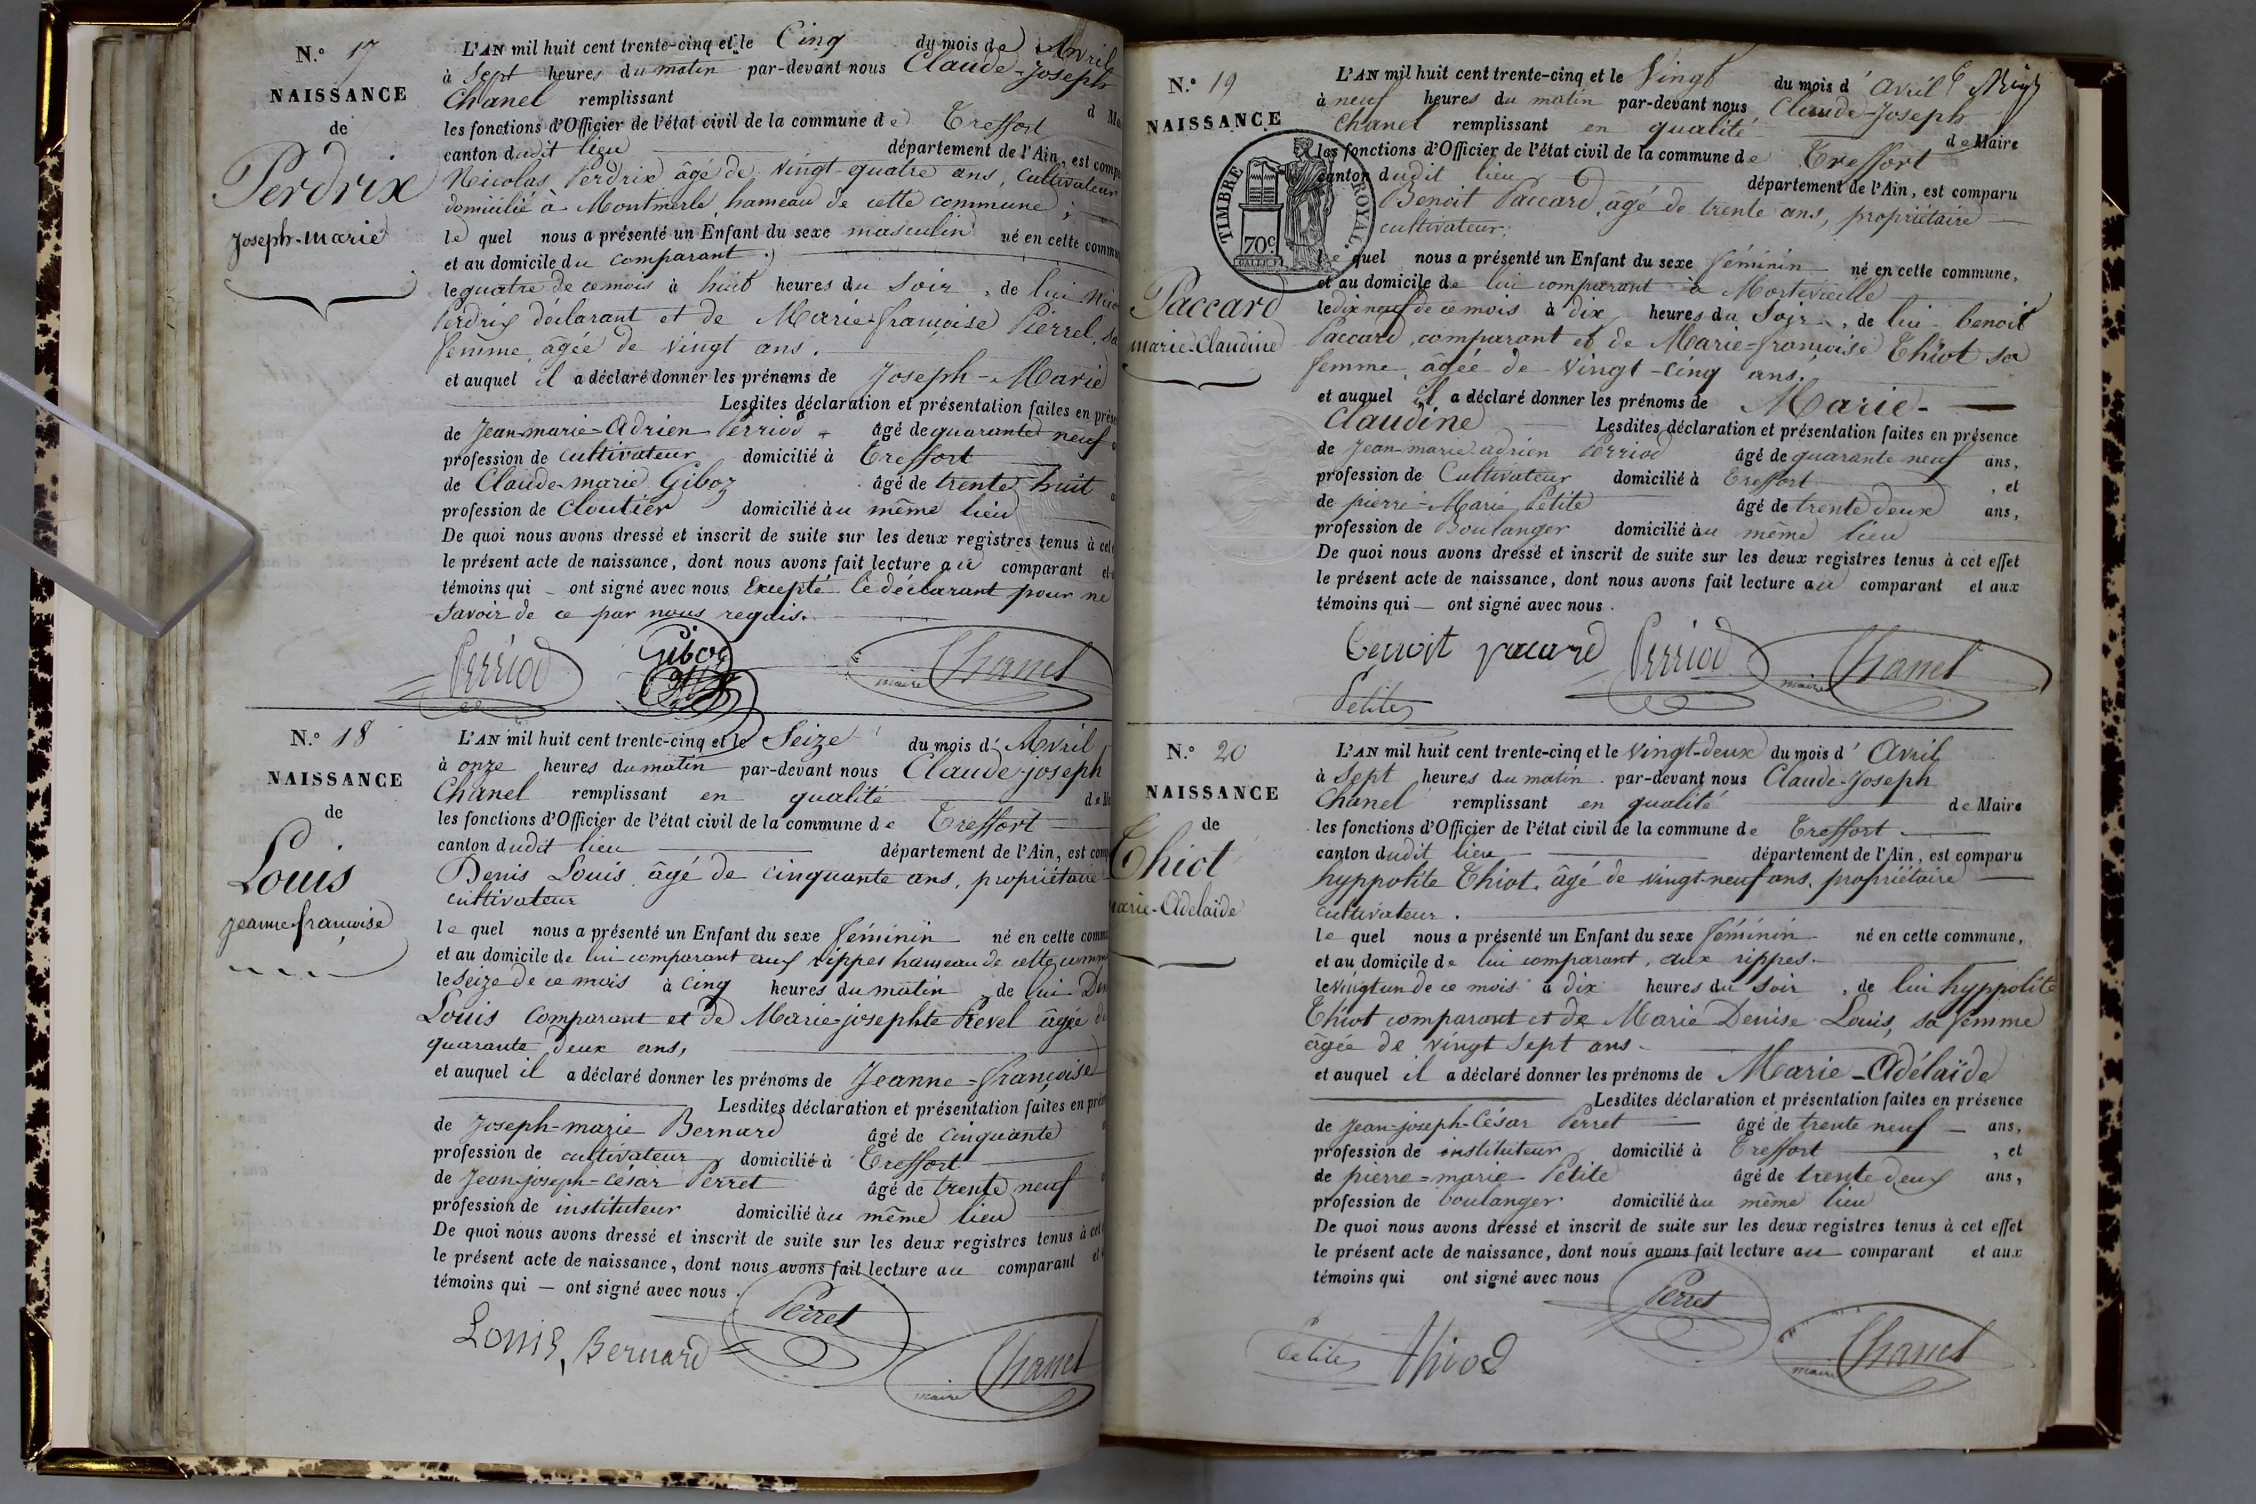 N.º 17
NAISSANCE
de
Perdrix
Joseph-Marie
L'AN mil huit cent trente-cinq et le Cinq du mois de Avril
à Sept heures du matin par-devant nous Claude-Joseph
Chanel remplissant d Ma
les fonctions d'Officier de l'état civil de la commune de Treffort
canton dudit lieu département de l'Ain, est compa
Nicolas Perdrix âgé de vingt-quatre ans, cultivateur
domicilié à Montmerle, hameau de cette commune;
le quel nous a présenté un Enfant du sexe masculin né en cette commun
et au domicile du comparant.
le quatre de ce mois à huit heures du Soir, de lui Nico
Perdrix déclarant et de Marie-françoise Pierrel, sa
femme, âgée de vingt ans.
et auquel il a déclaré donner les prénoms de Joseph-Marie
Lesdites déclaration et présentation faites en prése
de Jean-marie-Adrien Perriod âgé de quarante neuf
profession de cultivateur domicilié à Treffort
de Claude-marie Giboz âgé de trente huit
profession de Cloutier domicilié au même lieu
De quoi nous avons dressé et inscrit de suite sur les deux registres tenus à cet
le présent acte de naissance, dont nous avons fait lecture au comparant et
témoins qui ont signé avec nous Excepté le déclarant pour ne
Savoir de ce par nous requis.
Perriod Giboz Chanel
maire
N.º 18
NAISSANCE
de
Louis
Jeanne françoise
L'AN mil huit cent trente-cinq et le Seize du mois d'Avril
à onze heures du matin par-devant nous Claude-joseph
Chanel remplissant en qualité de M
les fonctions d'Officier de l'état civil de la commune de Treffort
canton dudit lieu département de l'Ain, est comp
Denis Louis, âgé de cinquante ans, propriétaire
cultivateur
le quel nous a présenté un Enfant du sexe féminin né en cette comm
et au domicile de lui comparant aux rippes hameau de cette comm
le Seize de ce mois à cinq heures du matin, de lui Den
Louis Comparant et de Marie-josephte Revel âgée de
quarante deux ans,
et auquel il a déclaré donner les prénoms de Jeanne-françoise
Lesdites déclaration et présentation faites en prése
de Joseph-marie Bernard âgé de cinquante
profession de cultivateur domicilié à Treffort
de Jean-joseph-César Perret âgé de trente neuf
profession de instituteur domicilié au même lieu
De quoi nous avons dressé et inscrit de suite sur les deux registres tenus à cet
le présent acte de naissance, dont nous avons fait lecture au comparant et
témoins qui — ont signé avec nous.
Louis, Bernard Perret
maire Chanel
N.º 19
NAISSANCE
TIMBRE ROYAL.
70c
Paccard
marie-Claudine
L'AN mil huit cent trente-cinq et le Vingt du mois d'Avril
à neuf heures du matin par-devant nous Claude-Joseph
Chanel remplissant en qualité de Maire
les fonctions d'Officier de l'état civil de la commune de Treffort
canton dudit lieu département de l'Ain, est comparu
Benoit Paccard, âgé de trente ans, propriétaire
cultivateur;
le quel nous a présenté un Enfant du sexe féminin né en cette commune,
et au domicile de lui comparant à Mortevieille
le dix neuf de ce mois à dix heures du Soir, de lui benoit
Paccard, comparant et de Marie-françoise Thiot sa
femme, âgée de vingt-cinq ans.
et auquel il a déclaré donner les prénoms de Marie-
Claudine Lesdites déclaration et présentation faites en présence
de Jean-marie adrien Perriod âgé de quarante neuf ans,
profession de Cultivateur domicilié à Treffort, et
de pierre-Marie Petite âgé de trente deux ans,
profession de Boulanger domicilié au même lieu
De quoi nous avons dressé et inscrit de suite sur les deux registres tenus à cet effet
le présent acte de naissance, dont nous avons fait lecture au comparant et aux
témoins qui — ont signé avec nous.
Benoit pacard Perriod Chanel
maire
Petite
N.º 20
NAISSANCE
de
Thiot
arie-Adelaïde
L'AN mil huit cent trente-cinq et le vingt-deux du mois d'Avril
à Sept heures du matin par-devant nous Claude-Joseph
Chanel remplissant en qualité de Maire
les fonctions d'Officier de l'état civil de la commune de Treffort
canton dudit lieu département de l'Ain, est comparu
hyppolite Thiot, âgé de vingt-neuf ans, propriétaire
cultivateur.
le quel nous a présenté un Enfant du sexe féminin né en cette commune,
et au domicile de lui comparant, aux rippes.
le vingt un de ce mois à dix heures du Soir, de lui hyppolite
Thiot comparant et de Marie Denise Louis, sa femme
âgée de vingt Sept ans.
et auquel il a déclaré donner les prénoms de Marie-Adélaïde
Lesdites déclaration et présentation faites en présence
de jean-joseph-César Perret âgé de trente neuf — ans,
profession de instituteur domicilié à Treffort, et
de pierre-marie Petite âgé de trente deux ans,
profession de boulanger domicilié au même lieu
De quoi nous avons dressé et inscrit de suite sur les deux registres tenus à cet effet
le présent acte de naissance, dont nous avons fait lecture au comparant et aux
témoins qui ont signé avec nous
Perret
Petite Thiod Chanel
maire